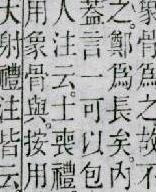 象骨爲之故不
之鄭爲長矣内
蓋言一可以包
人注云士喪禮
用象骨與按用
大射禮注皆云